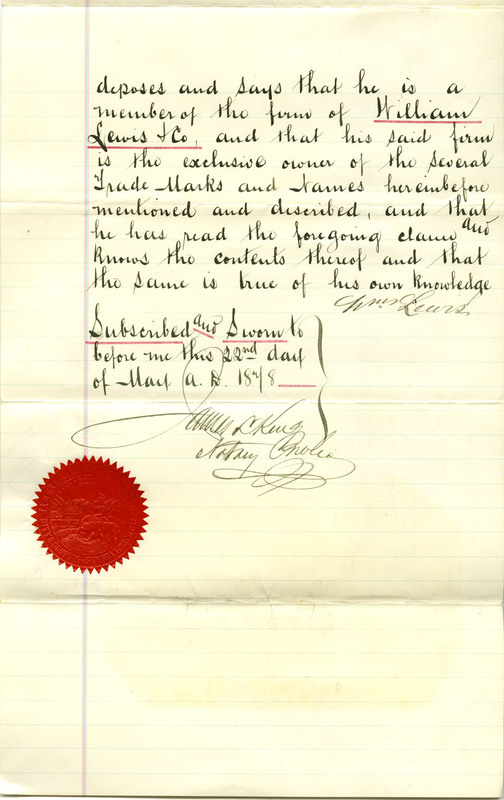 deposes and says that he is a
member of the firm of William
Lewis & Co, and that his said firm
is the exclusive owner of the several
Trade Marks and Names hereinbefore
mentioned and described, and that
he has read the foregoing claim and
knows the contents thereof and that
the same is true of his own knowledge
Wm Lewis
Subscribed and Sworn to
before me this 22nd day
of May A. D. 1878
James L King
Notary Public